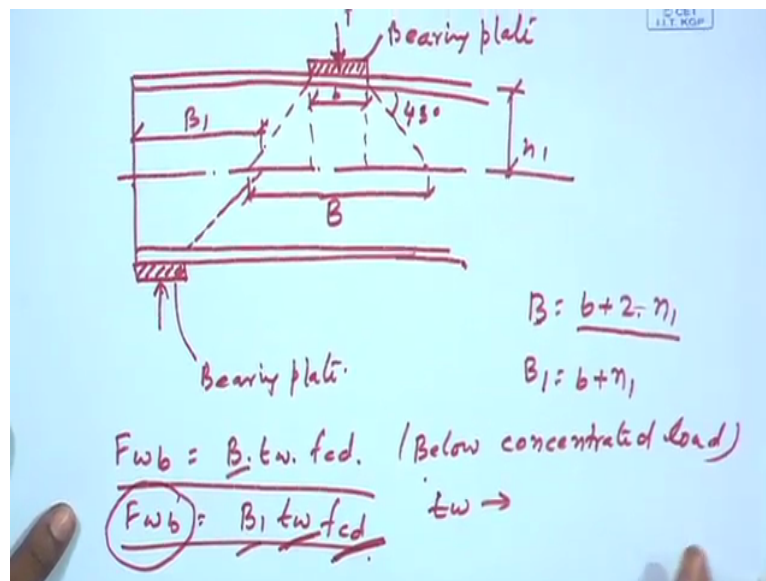 © CET
I.I.T. KGP
Bearing plate
b
B1
45°
n1
B
Bearing plate.
B = b + 2. n1
B1 = b + n1
Fwb = B. tw. fcd. (Below concentrated load)
Fwb = B1 tw fcd. tw →